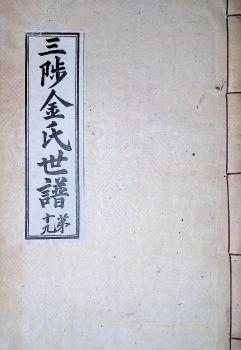 三陟金氏世譜
第十九